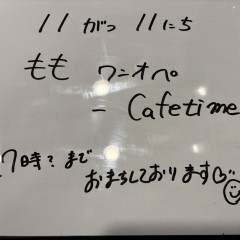 11がつ11にち
もも ワンオペ
- Cafetime
17時?まで
おまちしております